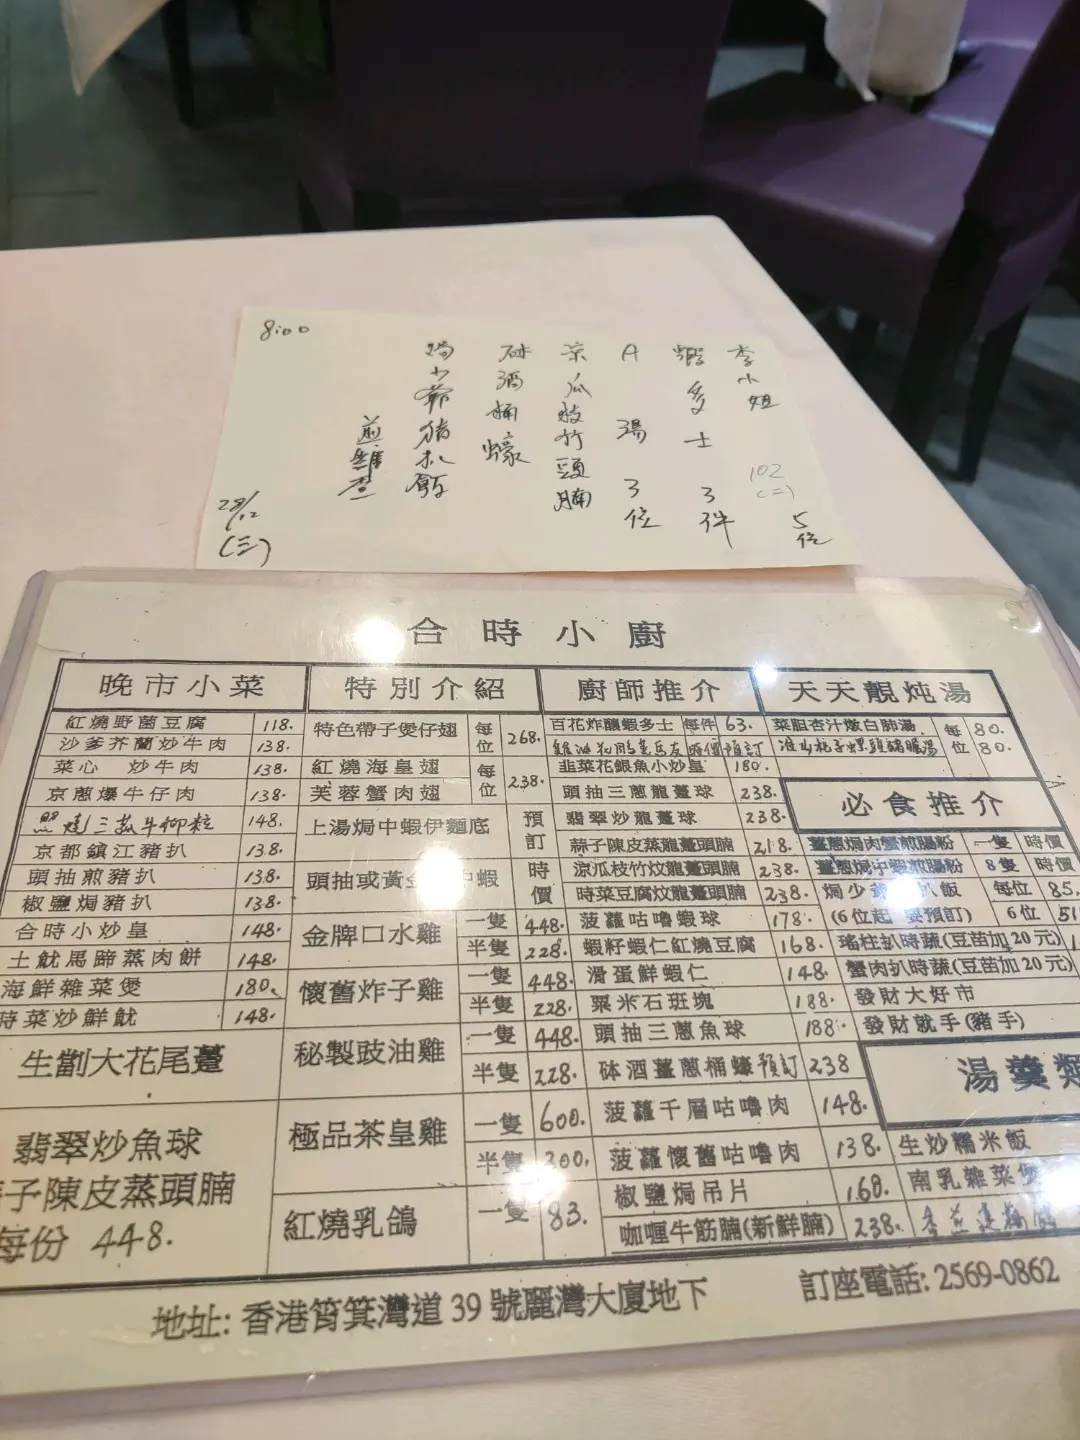 8:00
李小姐
102
(二)
5位
蝦多士 3件
A 湯 3位
凉瓜枝竹頭腩
砵酒桶蠔
焗少爺猪扒飯
28/12
(三)
合時小廚
晚市小菜
紅燒野菌豆腐 118.
沙爹芥蘭炒牛肉 138.
菜心 炒牛肉 138.
京蔥爆牛仔肉 138.
148.
京都鎮江豬扒 138.
頭抽煎豬扒 138.
椒鹽焗豬扒 138.
合時小炒皇 148.
土魷馬蹄蒸肉餅 148.
海鮮雜菜煲 180.
時菜炒鮮魷 148.
生劏大花尾躉
翡翠炒魚球
子陳皮蒸頭腩
每份 448.
特別介紹
特色帶子煲仔翅 每位 268.
紅燒海皇翅 每位 238.
芙蓉蟹肉翅
上湯焗中蝦伊麵底 預訂
頭抽或黃金 中蝦 時價
金牌口水雞 一隻 448.
半隻 228.
懷舊炸子雞 一隻 448.
半隻 228.
秘製豉油雞 一隻 448.
半隻 228.
極品茶皇雞 一隻 600.
半隻 300.
紅燒乳鴿 一隻 83.
廚師推介
百花炸釀蝦多士 每件 63.
時價 預訂
韭菜花銀魚小炒皇 180.
頭抽三蔥龍躉球 238.
翡翠炒龍躉球 238.
蒜子陳皮蒸龍躉頭腩 218.
涼瓜枝竹炆龍躉頭腩 238.
時菜豆腐炆龍躉頭腩 238.
菠蘿咕嚕蝦球 178.
蝦籽蝦仁紅燒豆腐 168.
滑蛋鮮蝦仁 148.
粟米石斑塊 188.
頭抽三蔥魚球 188.
砵酒薑蔥桶蠔 預訂 238
菠蘿千層咕嚕肉 148.
菠蘿懷舊咕嚕肉 138.
椒鹽焗吊片 168.
咖喱牛筋腩(新鮮腩) 238.
天天靚炖湯
菜胆杏汁燉白肺湯 每位 80.
80.
必食推介
薑蔥焗肉蟹煎腸粉 一隻 時價
薑蔥焗中蝦煎腸粉 8隻 時價
焗少爺 扒飯 每位 85.
(6位起 要預訂) 6位 51
瑤柱扒時蔬(豆苗加20元)
蟹肉扒時蔬(豆苗加20元)
發財大好市
發財就手(豬手)
湯羹類
生炒糯米飯
南乳雜菜煲
地址: 香港筲箕灣道 39 號麗灣大廈地下
訂座電話: 2569-0862